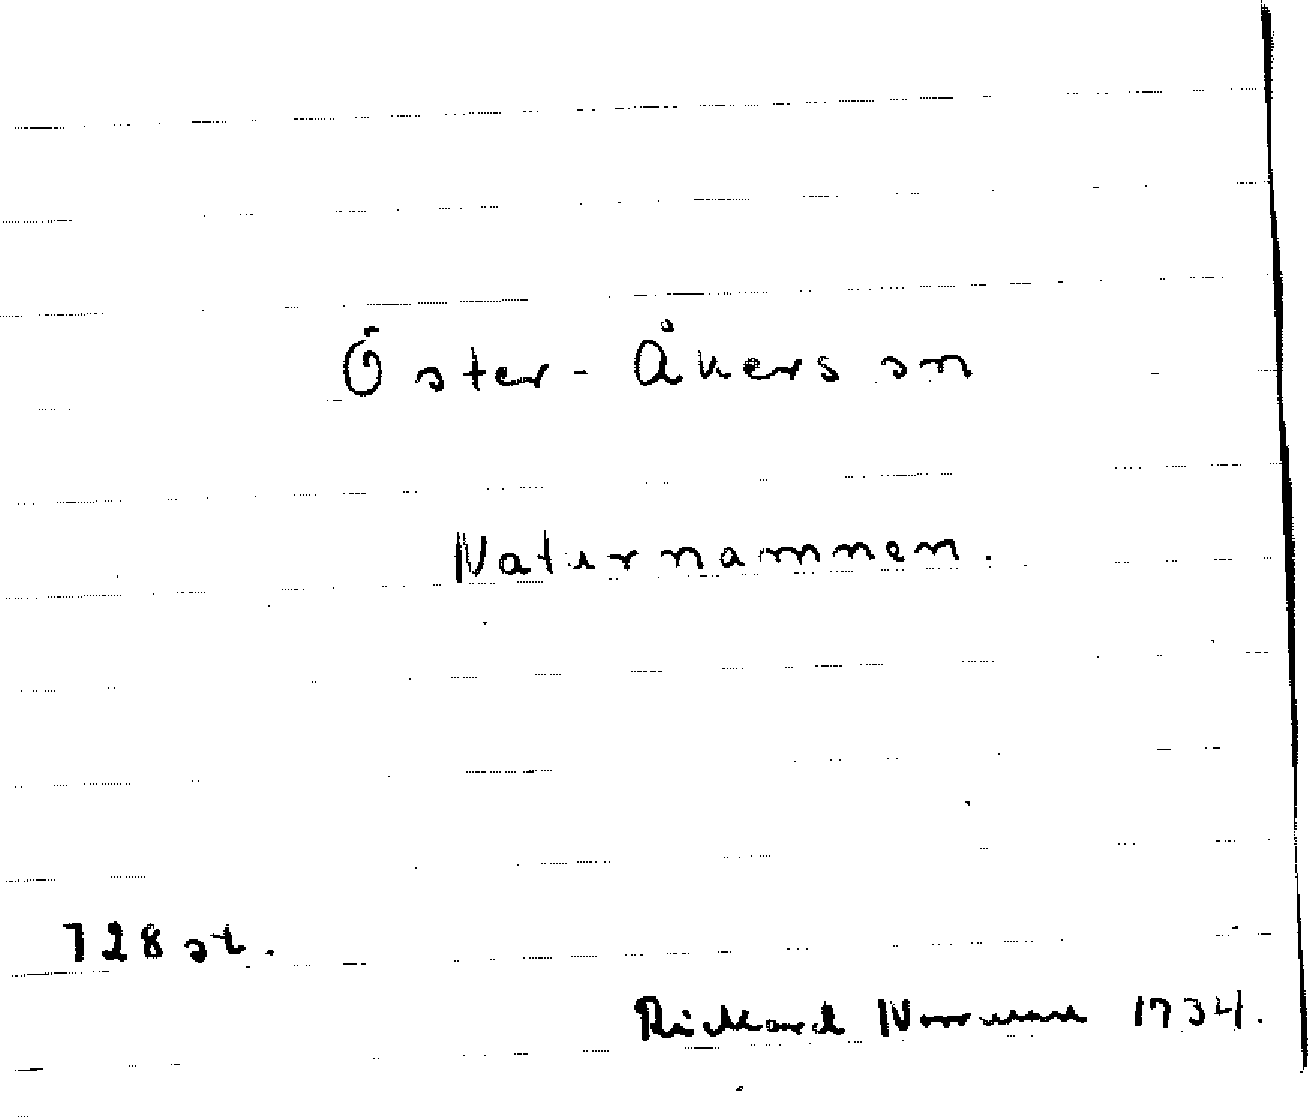 Öster-Åkers sn
Naturnamnen.
728 st.
Rickard Norrman 1934.